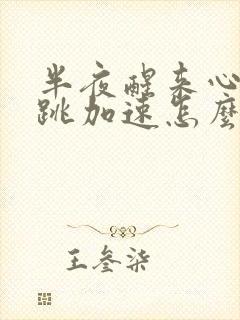 半夜醒来心
跳加速怎麼
王叁柒